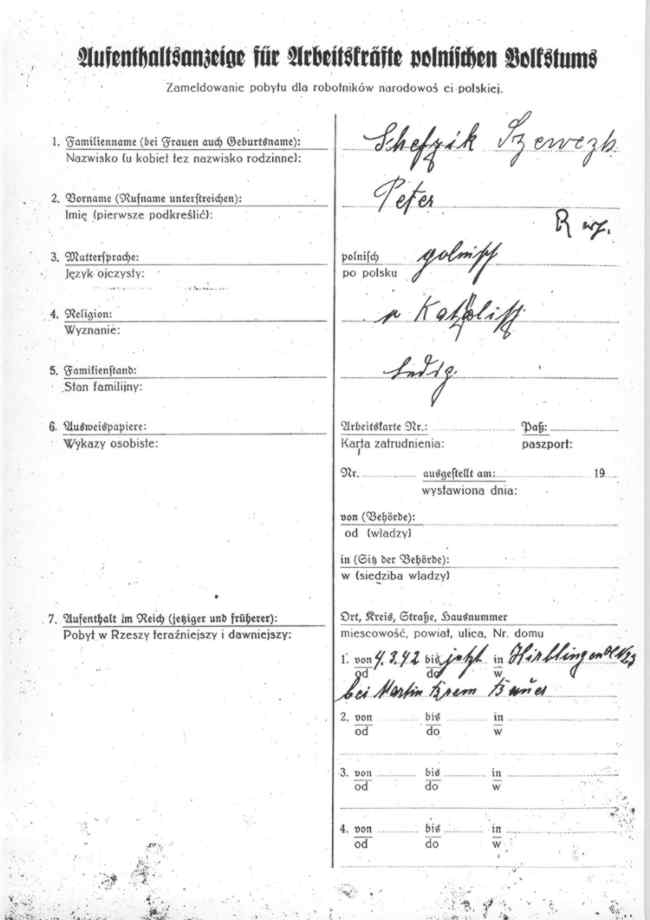 Aufenthaltsanzeige für Arbeitskräfte polnischen Volkstums
Zameldowanie pobytu dla robotników narodowoś ci polskiej.
1. Familienname (bei Frauen auch Geburtsname): Schefzik Szewczk
Nazwisko (u kobiet też nazwisko rodzinne):
2. Vorname (Rufname unterstreichen): Peter
Imię (pierwsze podkreślić):
3. Muttersprache: polnisch polnisch
Język ojczysty: po polsku
4. Religion: Katholisch
Wyznanie:
5. Familienstand: ledig.
Stan familijny:
6. Ausweispapiere: Arbeitskarte Nr.: Paß:
Wykazy osobiste: Karta zatrudnienia: paszport:
Nr. ausgestellt am: 19
wystawiona dnia:
von (Behörde):
od (władzy)
in (Sitz der Behörde):
w (siedziba władzy)
7. Aufenthalt im Reich (jetziger und früherer): Ort, Kreis, Straße, Hausnummer
Pobyt w Rzeszy teraźniejszy i dawniejszy: miescowość, powiat, ulica, Nr. domu
1. von 4.3.42 bis jetzt in Hirblingen 23
od do w
bei Martin Brem Bauer
2. von bis in
od do w
3. von bis in
od do w
4. von bis in
od do w